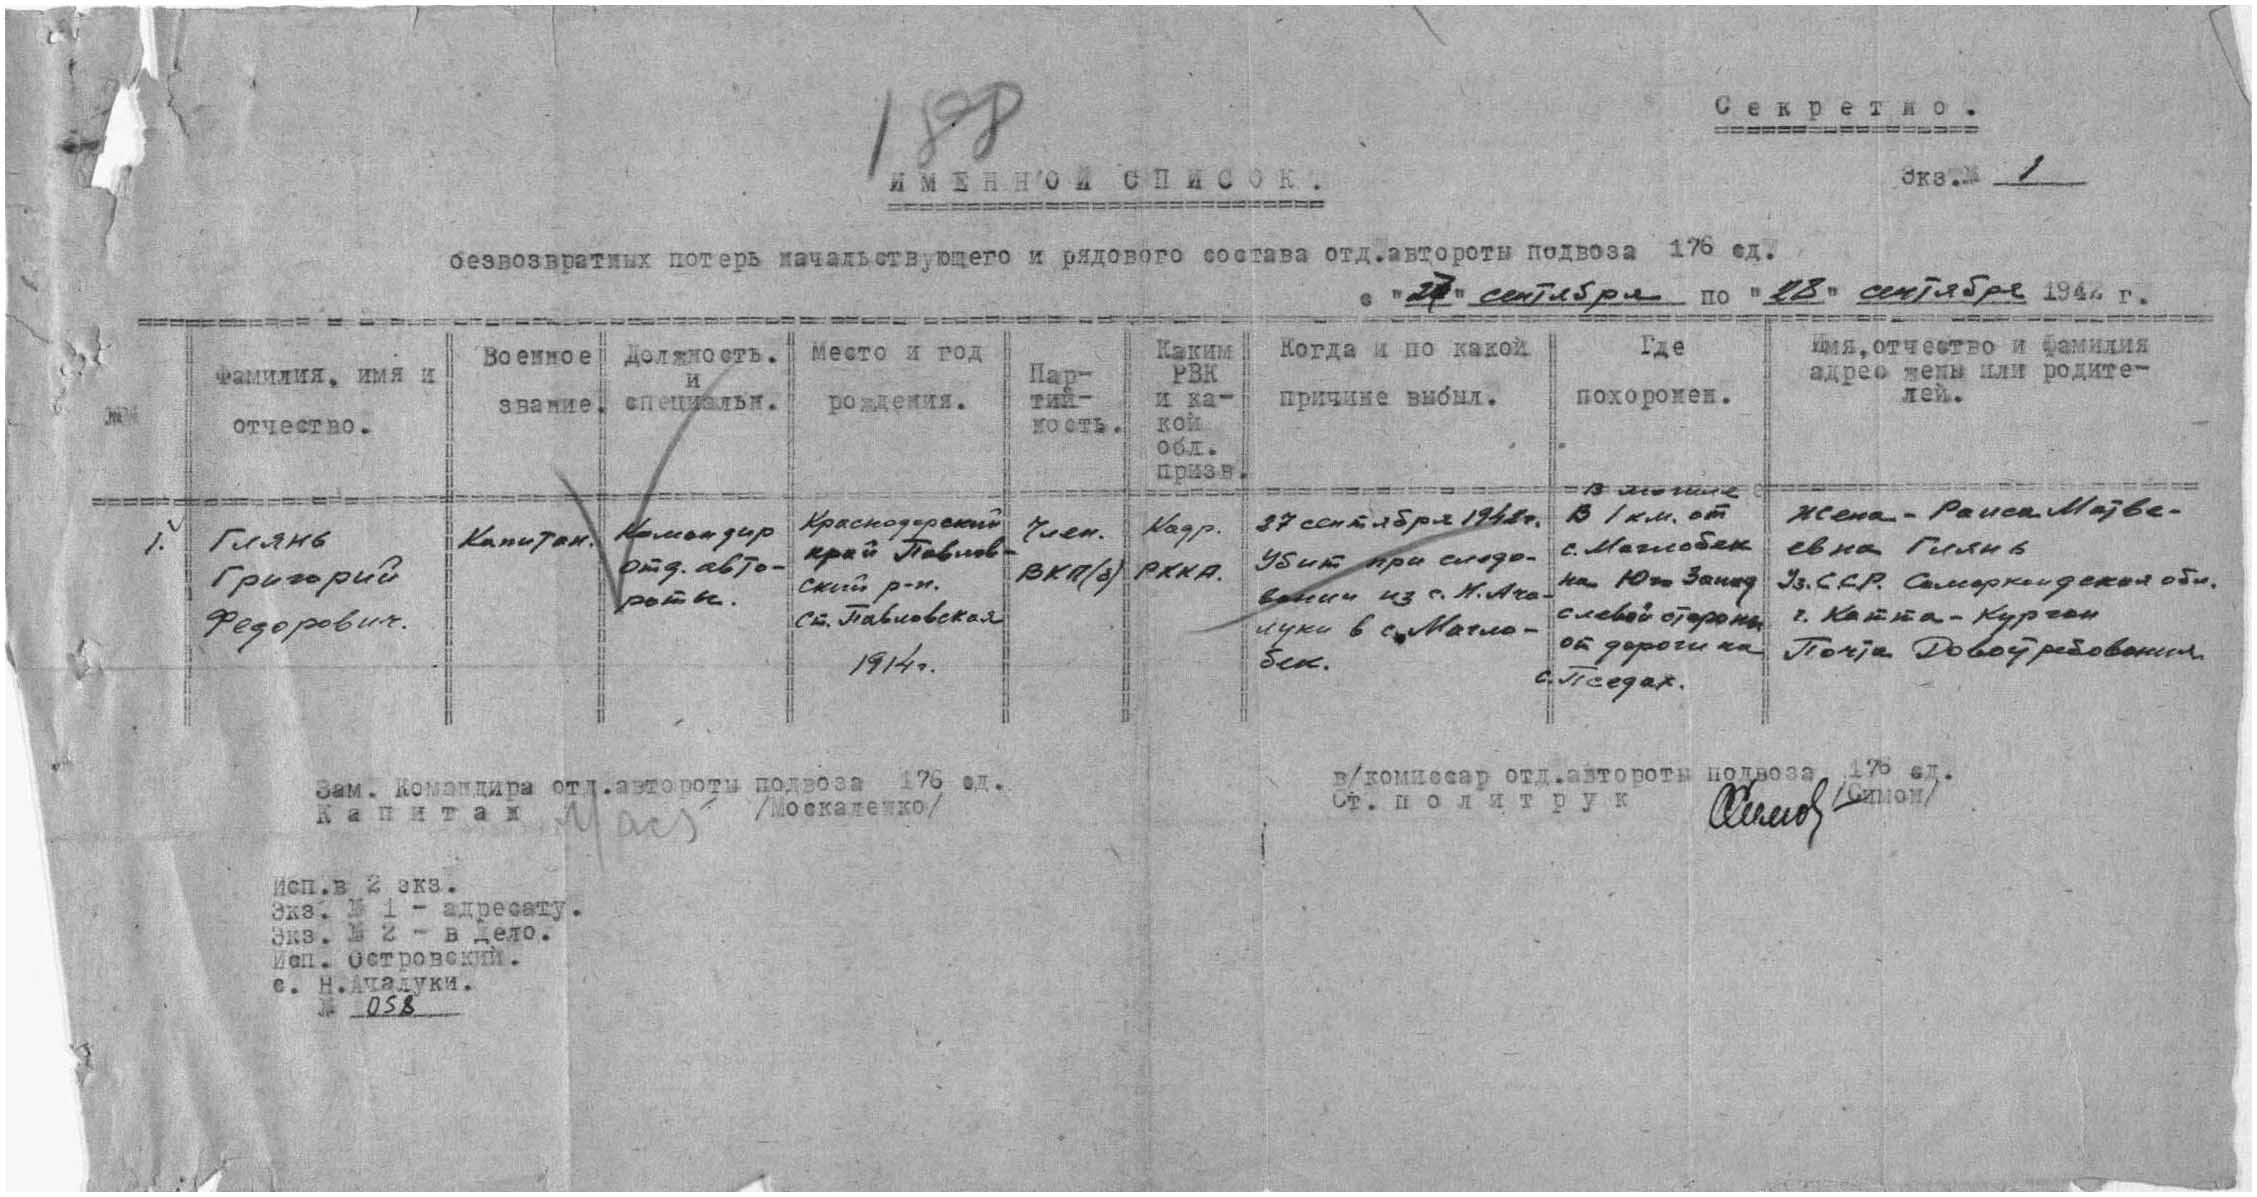 188
Секретно.
Экз.№ 1
ИМЕННОЙ СПИСОК.
безвозвратных потерь начальствующего и рядового состава отд.автороты подвоза 176 сд.
с "27" сентября по "28" сентября 1942 г.
№№
Фамилия, имя и
отчество.
Военное
звание.
Должность.
и
специальн.
Место и год
рождения.
Пар-
тий-
ность.
Каким
РВК
и ка-
кой
обл.
призв.
Когда и по какой
причине выбыл.
Где
похоронен.
Имя,отчество и фамилия
адрес жены или родите-
лей.
1.
Глянь
Григорий
Федорович.
Капитан.
Командир
отд. авто-
роты.
Краснодарский
край Павлов-
ский р-н.
ст. Павловская
1914г.
Член.
ВКП(б)
Кадр.
РККА.
27 сентября 1942г.
Убит при следо-
вании из с. Н. Ача-
луки в с. Магло-
бек.
В могиле
В 1 км. от
с. Маглобек
на Юго Запад
с левой стороны
от дороги на
с. Пседах.
Жена - Раиса Матве-
евна Глянь
Уз.С.С.Р. Самаркандская обл.
г. Катта-Курган
Почта Довостребования
Зам. Командира отд.автороты подвоза 176 сд.
Капитан /Москаленко/
в/комиссар отд.автороты подвоза 176 сд.
Ст. политрук /Симон/
Исп.в 2 экз.
Экз. № 1 - адресату.
Экз. № 2 - в дело.
Исп. Островский.
с. Н.Ачалуки.
№ 058